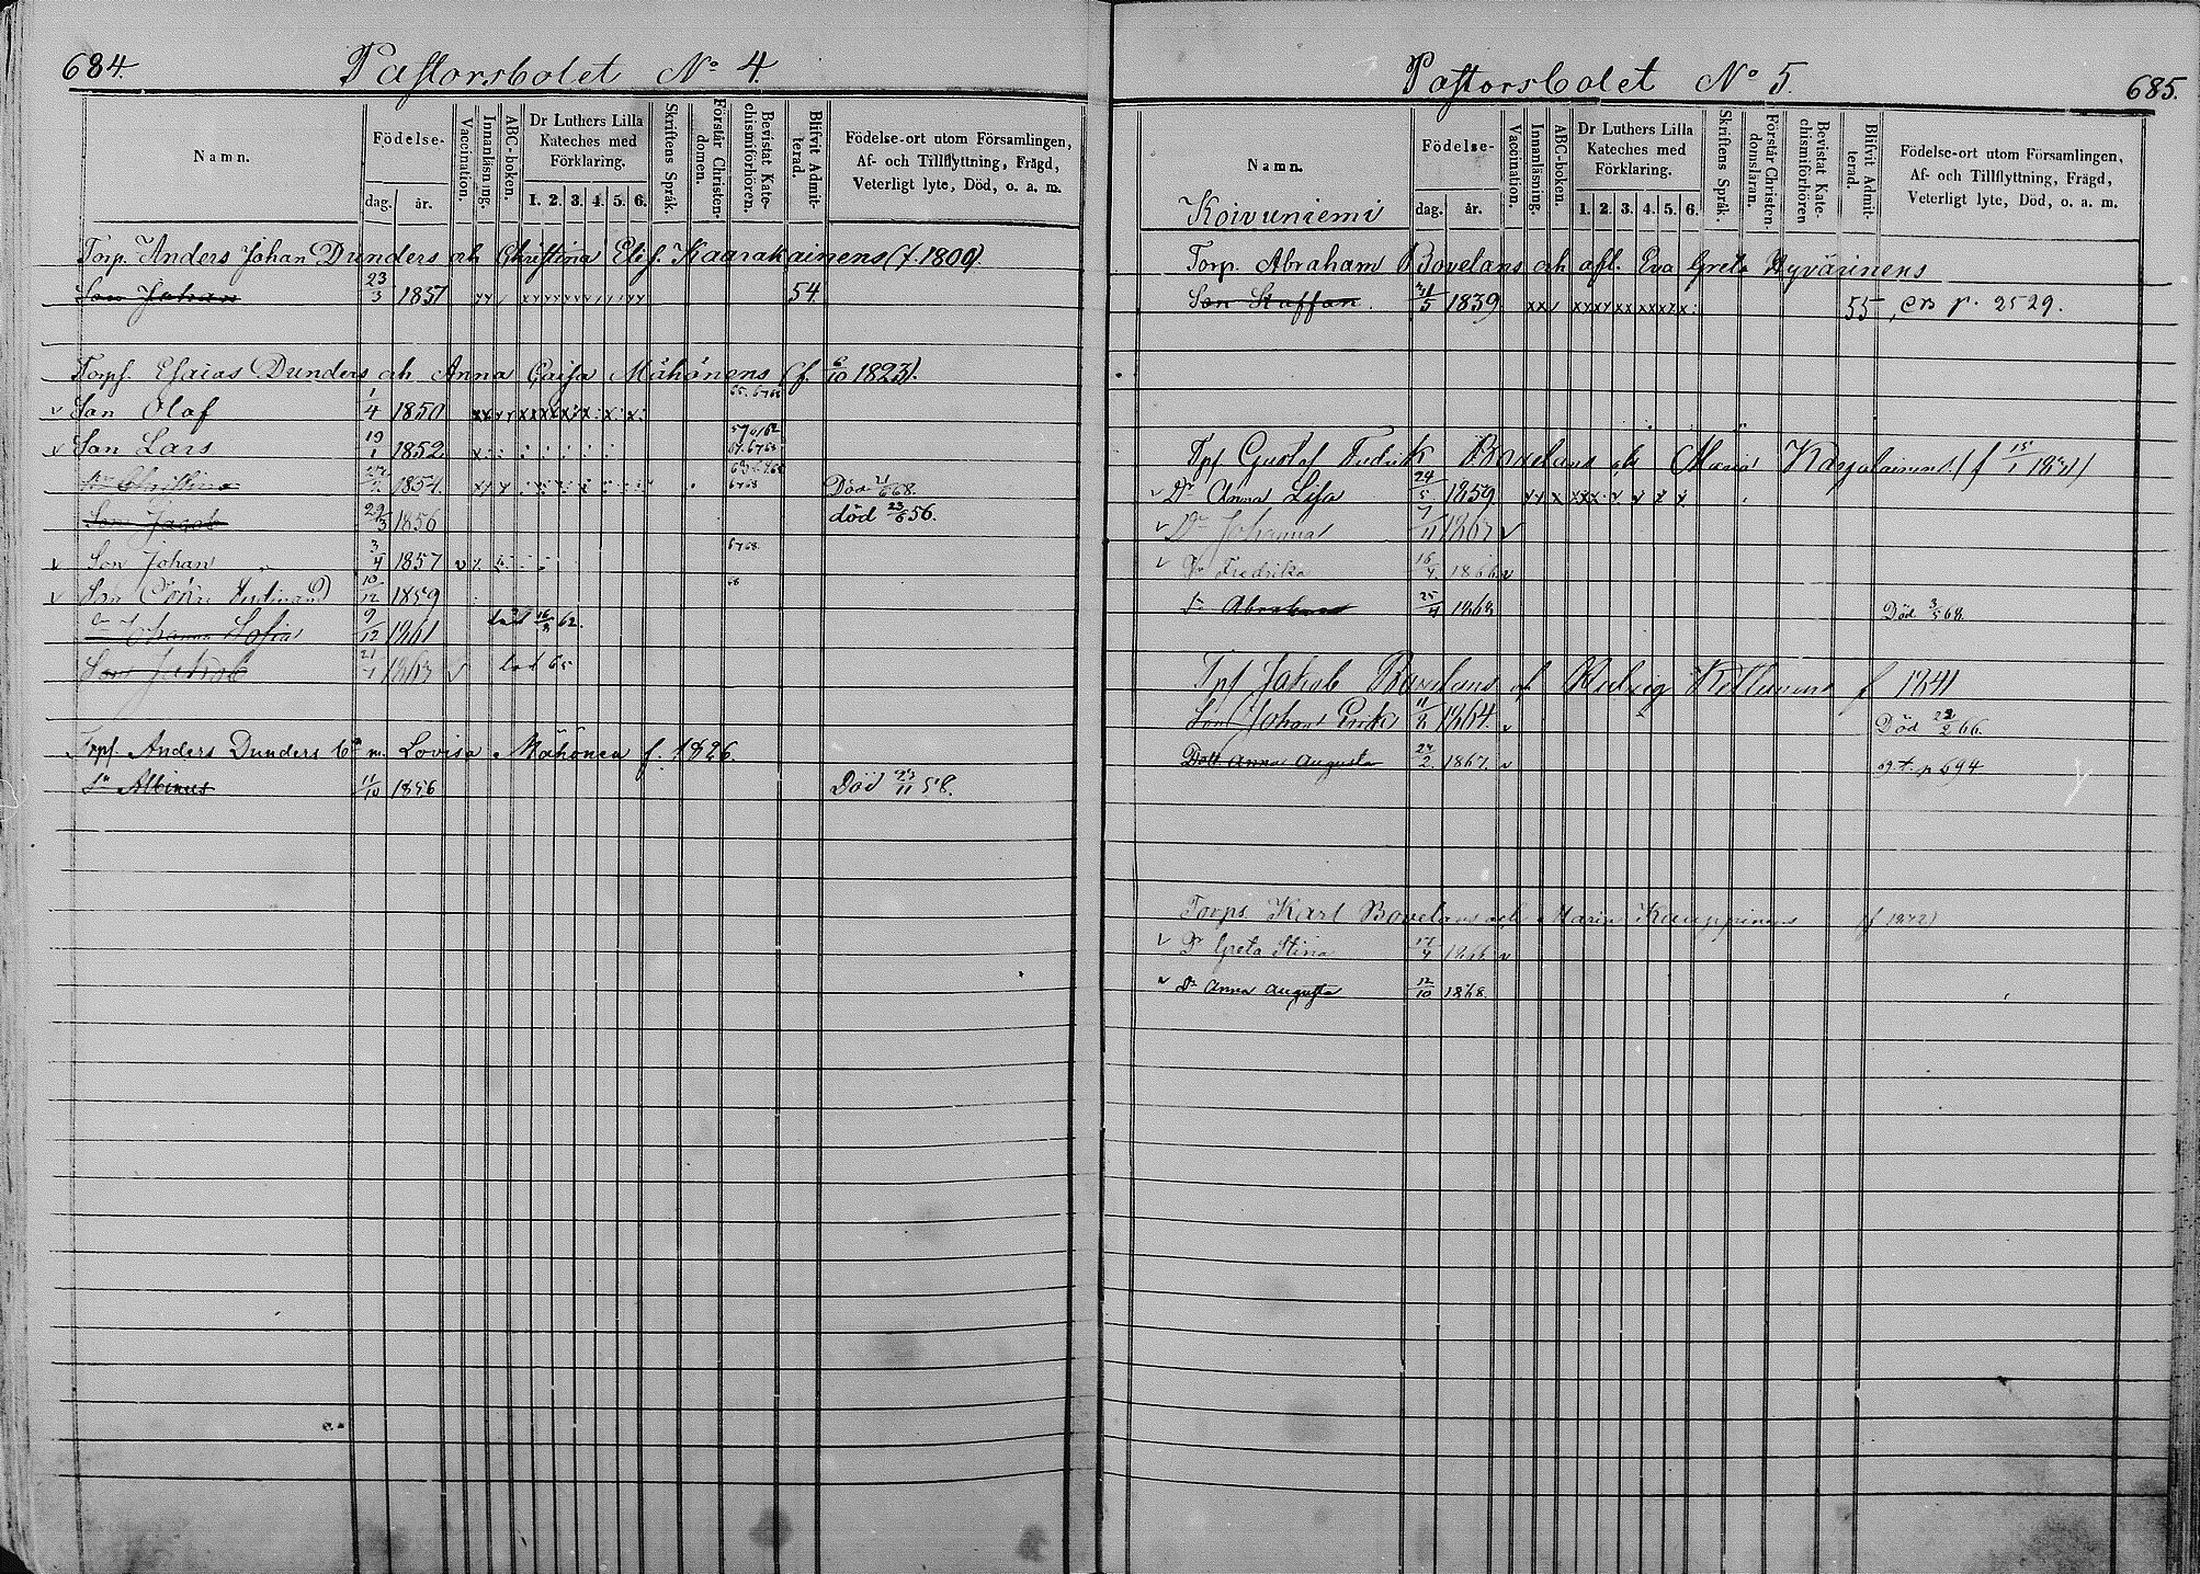 684.
Pastorsbolet No 4.
Namn.
Födelse-
dag.
år.
Vaccination.
Innanläsning.
ABC-boken.
Dr Luthers Lilla
Kateches med
Förklaring.
1. 2. 3. 4. 5. 6.
Skriftens Språk.
Förstår Christen-
domen.
Bevistat Kate-
chismiförhören.
Blifvit Admit-
terad.
Födelse-ort utom Församlingen,
Af- och Tillflyttning, Frägd,
Veterligt lyte, Död, o. a. m.
Torp. Anders Johan Dunders och Christina Elis. Kaarakainens (f. 1809)
Son Johan 23/3 1837 54
Torpf. Esaias Dunders och Anna Caisa Mähönens (f. 6/10 1823).
Son Olof 1/4 1850
Son Lars 19/1 1852
Christina 1854 Död 68.
Son Jacob 29/3 1856 död 23/6 56.
Son Johan 3/4 1857 6768
Son Ferdinand 10/12 1859 68
Johanna Sofia 9/12 1861 död 16/3 62.
Son Jakob 21/1 1863 död 65
Torpf. Anders Dunders m. Lovisa Mähönen f. 1826.
Sn Albinus 11/10 1856 Död 27/11 58.
Pastorsbolet No 5.
685.
Namn.
Koivuniemi
Födelse-
dag.
år.
Vaccination.
Innanläsning.
ABC-boken.
Dr Luthers Lilla
Kateches med
Förklaring.
1. 2. 3. 4. 5. 6.
Skriftens Språk.
Förstår Christen-
domsläran.
Bevistat Kate-
chismiförhören
Blifvit Admit-
terad.
Födelse-ort utom Församlingen,
Af- och Tillflyttning, Frägd,
Veterligt lyte, Död, o. a. m.
Torp. Abraham Bovelans och afl. Eva Greta Hyvärinens
Son Staffan. 31/5 1839 55 p. 2529.
Tpf Gustaf Fredrik Bovelans och Maria Karjalainens (f 15/1 1831)
Dr Anna Lisa 24/5 1859
Dr Johanna 7/11 1863
Dr Fredrika 16/4 1866
Sn Abraham 25/4 1868 Död 3/5 68.
Tpf Jakob Bovelans och Hedvig Kettunens f 1841
Son Johan Erik 11/8 1864. Död 22/2 66.
Dott. Anna Augusta 24/2 1867. p 694
Torps. Karl Bovelans och Maria Kauppinens (f 1842)
Dr Greta Stina 17/4 1866
Dr Anna Augusta 12/10 1868.